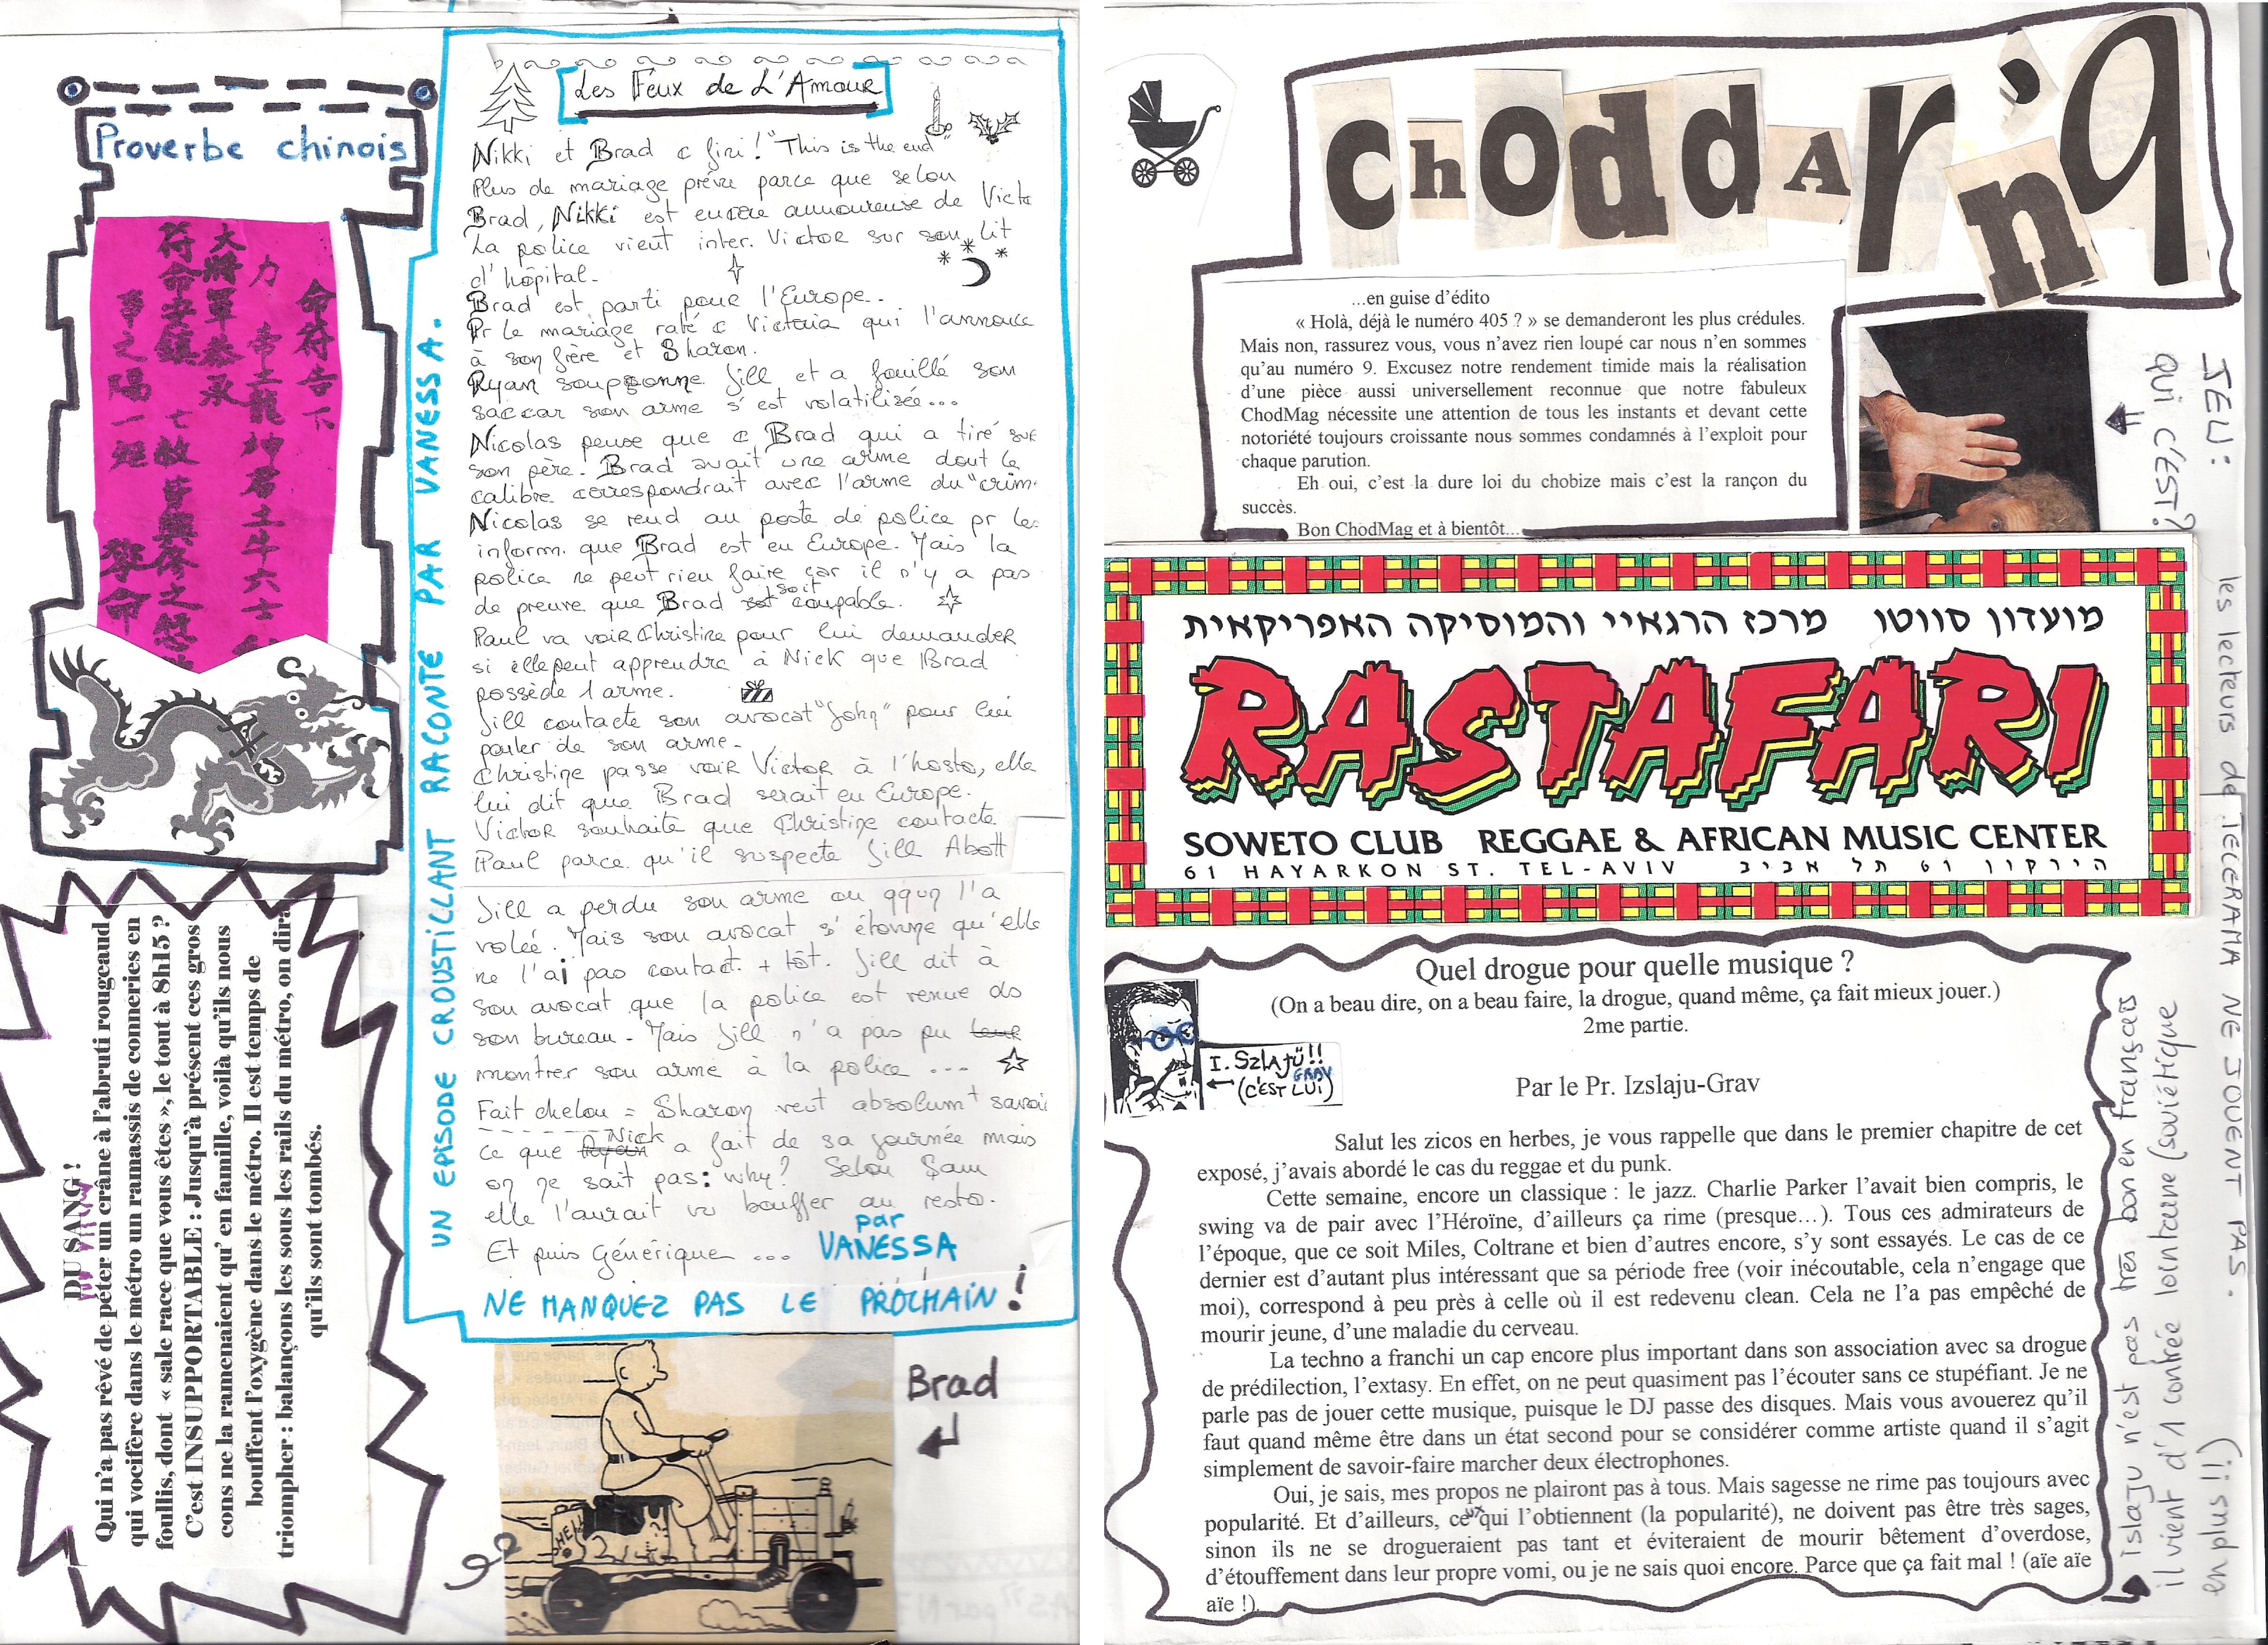 Proverbe chinois
命符告下
力 帝土龍神君土牛六士
大將軍恭承
符命安鎮
亡故
UN EPISODE CROUSTILLANT RACONTE PAR VANESS A.
Les Feux de L'Amour
Nikki et Brad c fini ! "This is the end"
Plus de mariage prévu parce que selon
Brad, Nikki est encore amoureuse de Victo
La police vient inter. Victor sur son lit
d'hôpital.
Brad est parti pour l'Europe.
Pr le mariage raté c Victoria qui l'annonce
à son frère et Sharon.
Ryan soupçonne Jill et a fouillé son
sac car son arme s'est volatilisée...
Nicolas pense que c Brad qui a tiré sur
son père. Brad avait une arme dont le
calibre correspondrait avec l'arme du "crim.
Nicolas se rend au poste de police pr les
inform. que Brad est en Europe. Mais la
police ne peut rien faire car il n'y a pas
de preuve que Brad soit coupable.
Paul va voir Christine pour lui demander
si elle peut apprendre à Nick que Brad
possède l'arme.
Jill contacte son avocat "John" pour lui
parler de son arme.
Christine passe voir Victor à l'hosto, elle
lui dit que Brad serait en Europe.
Victor souhaite que Christine contacte
Paul parce qu'il suspecte Jill Abott
Jill a perdu son arme ou qqun l'a
volée. Mais son avocat s'étonne qu'elle
ne l'ai pas contact. + tôt. Jill dit à
son avocat que la police est venue ds
son bureau. Mais Jill n'a pas pu leur
montrer son arme à la police ...
Fait chelou = Sharon veut absolumt savoi
ce que Ryan Nick a fait de sa journée mais
on ne sait pas: why? Selon Sam
elle l'aurait vu bouffer au resto.
Et puis Générique ...
par
VANESSA
NE MANQUEZ PAS LE PROCHAIN !
Brad
SHELL
DU SANG !
Qui n'a pas rêvé de péter un crâne à l'abruti rougeaud
qui vocifère dans le métro un ramassis de conneries en
foullis, dont « sale race que vous êtes », le tout à 8h15 ?
C'est INSUPPORTABLE : Jusqu'à présent ces gros
cons ne la ramenaient qu' en famille, voilà qu'ils nous
bouffent l'oxygène dans le métro. Il est temps de
triompher : balançons les sous les rails du métro, on dira
qu'ils sont tombés.
choddAr'nq
...en guise d'édito
« Holà, déjà le numéro 405 ? » se demanderont les plus crédules.
Mais non, rassurez vous, vous n'avez rien loupé car nous n'en sommes
qu'au numéro 9. Excusez notre rendement timide mais la réalisation
d'une pièce aussi universellement reconnue que notre fabuleux
ChodMag nécessite une attention de tous les instants et devant cette
notoriété toujours croissante nous sommes condamnés à l'exploit pour
chaque parution.
Eh oui, c'est la dure loi du chobize mais c'est la rançon du
succès.
Bon ChodMag et à bientôt...
JEU :
QUI C'EST ?
les lecteurs de TELERAMA NE JOUENT PAS.
מועדון סווטו מרכז הרגאיי והמוסיקה האפריקאית
RASTAFARI
SOWETO CLUB REGGAE & AFRICAN MUSIC CENTER
61 HAYARKON ST. TEL-AVIV הירקון 61 תל אביב
Quel drogue pour quelle musique ?
(On a beau dire, on a beau faire, la drogue, quand même, ça fait mieux jouer.)
2me partie.
I. SZLAJU!!
GRAV
(C'EST LUI)
Par le Pr. Izslaju-Grav
Salut les zicos en herbes, je vous rappelle que dans le premier chapitre de cet
exposé, j'avais abordé le cas du reggae et du punk.
Cette semaine, encore un classique : le jazz. Charlie Parker l'avait bien compris, le
swing va de pair avec l'Héroïne, d'ailleurs ça rime (presque...). Tous ces admirateurs de
l'époque, que ce soit Miles, Coltrane et bien d'autres encore, s'y sont essayés. Le cas de ce
dernier est d'autant plus intéressant que sa période free (voir inécoutable, cela n'engage que
moi), correspond à peu près à celle où il est redevenu clean. Cela ne l'a pas empêché de
mourir jeune, d'une maladie du cerveau.
La techno a franchi un cap encore plus important dans son association avec sa drogue
de prédilection, l'extasy. En effet, on ne peut quasiment pas l'écouter sans ce stupéfiant. Je ne
parle pas de jouer cette musique, puisque le DJ passe des disques. Mais vous avouerez qu'il
faut quand même être dans un état second pour se considérer comme artiste quand il s'agit
simplement de savoir-faire marcher deux électrophones.
Oui, je sais, mes propos ne plairont pas à tous. Mais sagesse ne rime pas toujours avec
popularité. Et d'ailleurs, ceux qui l'obtiennent (la popularité), ne doivent pas être très sages,
sinon ils ne se drogueraient pas tant et éviteraient de mourir bêtement d'overdose,
d'étouffement dans leur propre vomi, ou je ne sais quoi encore. Parce que ça fait mal ! (aïe aïe
aïe !).
islaju n'est pas très bon en français
il vient d'1 contrée lointaine (soviétique
en plus ii)